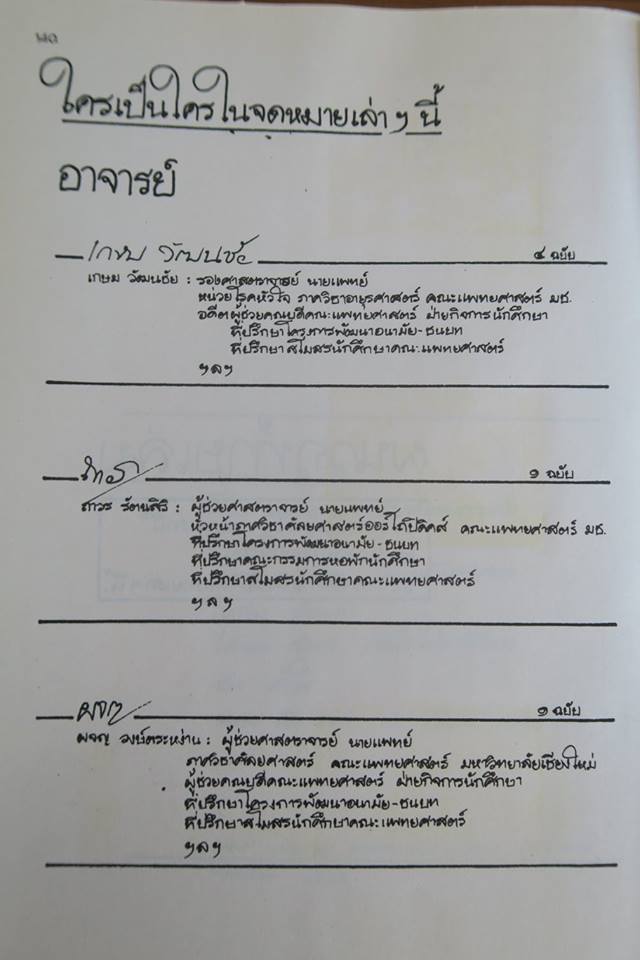 ๒๑
ใครเป็นใครในจดหมายเล่า ๆ นี้
อาจารย์
เกษม วัฒนชัย ๔ ฉบับ
เกษม วัฒนชัย : รองศาสตราจารย์ นายแพทย์
หน่วยโรคหัวใจ ภาควิชาอายุรศาสตร์ คณะแพทยศาสตร์ มช.
อดีตผู้ช่วยคณบดีคณะแพทยศาสตร์ ฝ่ายกิจการนักศึกษา
ที่ปรึกษาโครงการพัฒนาอนามัย-ชนบท
ที่ปรึกษาสโมสรนักศึกษาคณะแพทยศาสตร์
ฯลฯ
ถาวร ๑ ฉบับ
ถาวร รัตนสิริ : ผู้ช่วยศาสตราจารย์ นายแพทย์
หัวหน้าภาควิชาศัลยศาสตร์ออร์โถปิดิคส์ คณะแพทยศาสตร์ มช.
ที่ปรึกษาโครงการพัฒนาอนามัย-ชนบท
ที่ปรึกษาคณะกรรมการหอพักนักศึกษา
ที่ปรึกษาสโมสรนักศึกษาคณะแพทยศาสตร์
ฯลฯ
ผจญ ๑ ฉบับ
ผจญ วงษ์ตระหง่าน : ผู้ช่วยศาสตราจารย์ นายแพทย์
ภาควิชาศัลยศาสตร์ คณะแพทยศาสตร์ มหาวิทยาลัยเชียงใหม่
ผู้ช่วยคณบดีคณะแพทยศาสตร์ ฝ่ายกิจการนักศึกษา
ที่ปรึกษาโครงการพัฒนาอนามัย-ชนบท
ที่ปรึกษาสโมสรนักศึกษาคณะแพทยศาสตร์
ฯลฯ